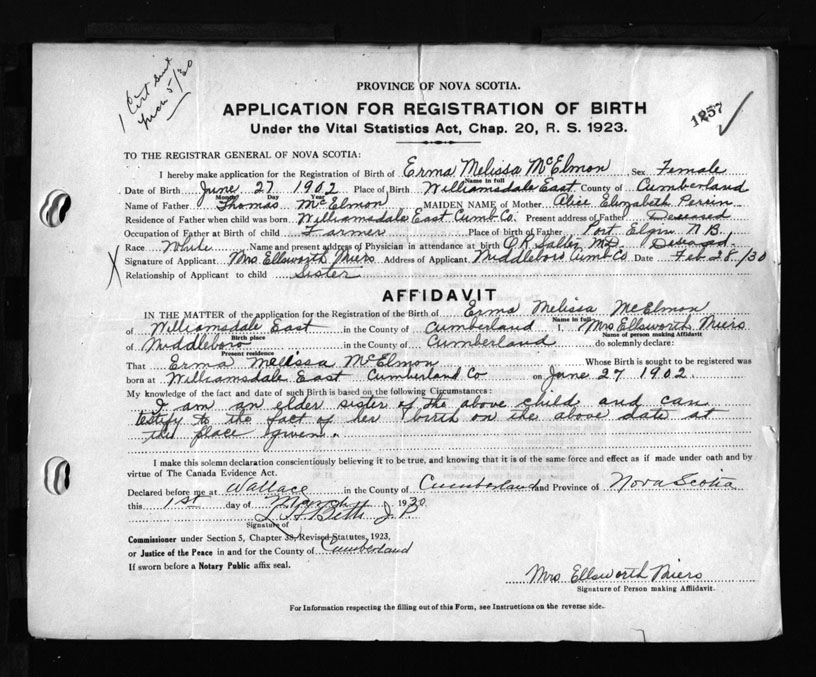 1 Cert sent
Mar 5/30
PROVINCE OF NOVA SCOTIA.
APPLICATION FOR REGISTRATION OF BIRTH
1257
Under the Vital Statistics Act, Chap. 20, R. S. 1923.
TO THE REGISTRAR GENERAL OF NOVA SCOTIA:
I hereby make application for the Registration of Birth of Erma Melissa McElmon Sex Female
Name in full
Date of Birth June 27 1902 Place of Birth Williamsdale East County of Cumberland
Month Day Year
Name of Father Thomas McElmon MAIDEN NAME of Mother Alice Elizabeth Perrin
Residence of Father when child was born Williamsdale East Cumb. Co. Present address of Father Deceased
Occupation of Father at Birth of child Farmer Place of birth of Father Port Elgin N.B.
Race White Name and present address of Physician in attendance at birth M.D. Deceased
Signature of Applicant Mrs Ellsworth Miers Address of Applicant Middleboro Cumb Co. Date Feb 28/30
Relationship of Applicant to child Sister
AFFIDAVIT
IN THE MATTER of the application of the Registration of the Birth of Erma Melissa McElmon
Name in full
of Williamsdale East in the County of Cumberland I, Mrs Ellsworth Miers
Birth place Name of person making Affidavit
of Middleboro in the County of Cumberland do solemnly declare:
Present residence
That Erma Melissa McElmon Whose Birth is sought to be registered was
born at Williamsdale East Cumberland Co on June 27 1902.
My knowledge of the fact and date of such Birth is based on the following Circumstances:
I am an elder sister of the above child and can
testify to the fact of her birth on the above date at
the place given.
I make this solemn declaration conscientiously believing it to be true, and knowing that it is of the same force and effect as if made under oath and by
virtue of The Canada Evidence Act.
Declared before me at Wallace in the County of Cumberland and Province of Nova Scotia
this 1st day of March 1930
Betts J.P.
Signature of
Commissioner under Section 5, Chapter 38, Revised Statutes, 1923,
or Justice of the Peace in and for the County of Cumberland
If sworn before a Notary Public affix seal.
Mrs. Ellsworth Miers
Signature of Person making Affidavit.
For Information respecting the filling out of this Form, see Instructions on the reverse side.